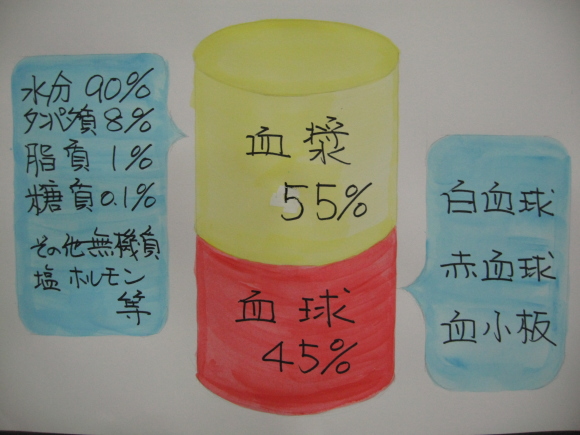 水分 90%
タンパク質 8%
脂質 1%
糖質 0.1%
その他無機質
塩 ホルモン
等
血漿
55%
血球
45%
白血球
赤血球
血小板